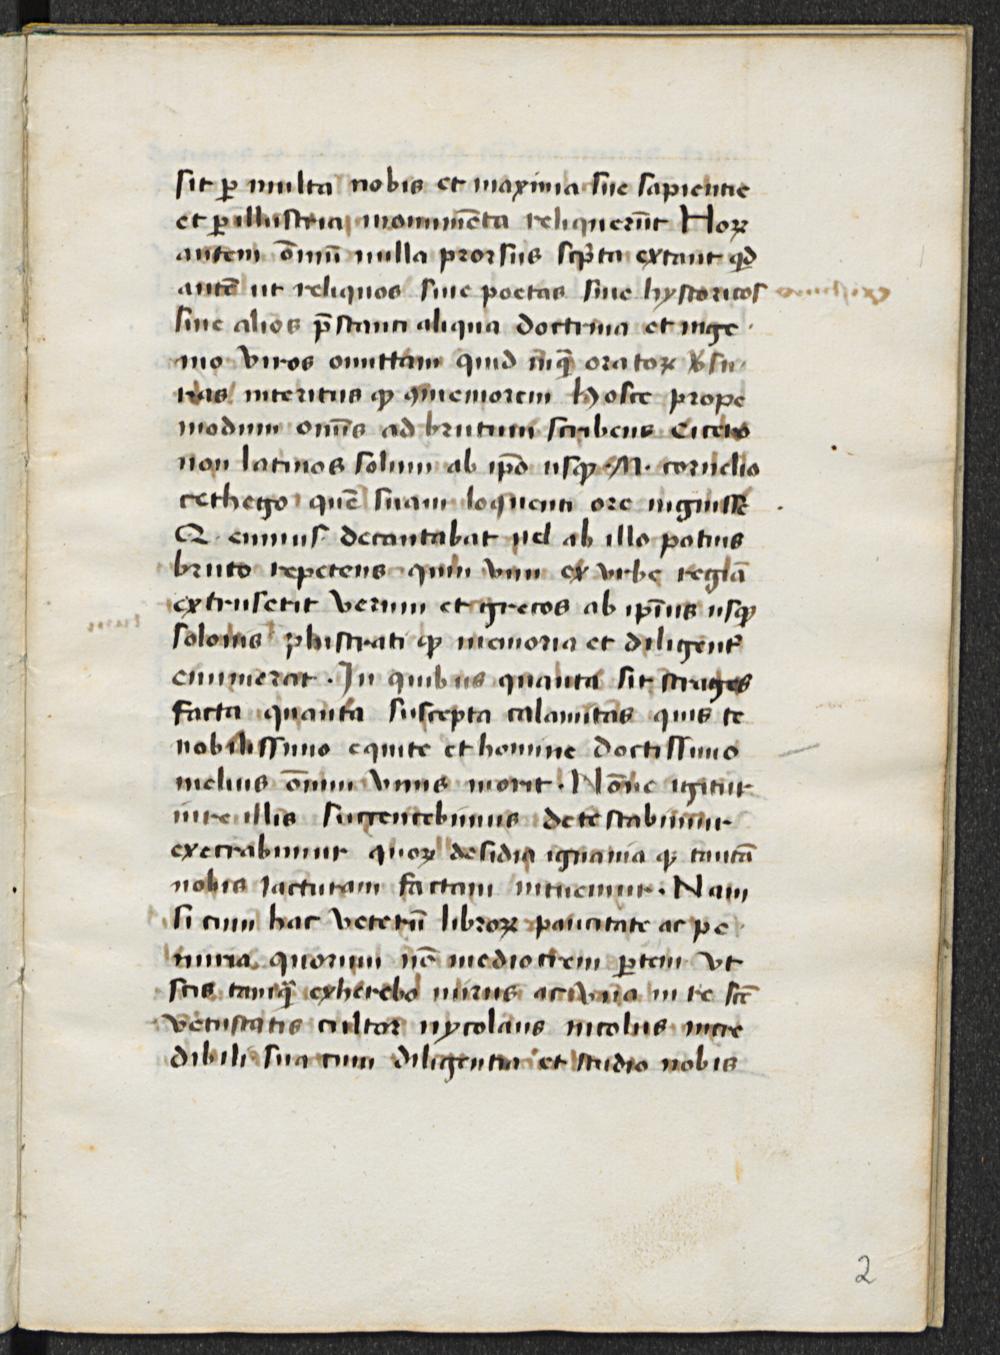 sit ꝑ multa nobis et maxima sue sapientie
et ꝑillustria monumēta reliquerūt Hoꝝ
autem ōmiū nulla prorsus scpͥta extant qd̄
autē ut reliquos siue poetas siue hystoricos
siue alios p̄stanti aliqua doctrina et inge
nio viros omittam quid inqͣ oratoꝝ
ras interitus ꝙ Hosce prope
modum omīs ad brutum scribens Cicero
non latinos solum ab ip̄o usqꝫ .M. cornelio
cethego quē suaui loquenti ore
Q. ennius decantabat uel ab illo potius
bruto repetens qui vim ex vrbe regiā
extruserit verum et grecos ab ip̄ius usqꝫ
solonis phistrati ꝙ memoria et diligent᷑
enumerat . In quibus quanta sit strages
facta quanta suscepta calamitas quis te
nobilissimo equite et homine doctissimo
melius ōmium vnus norit . Nōne igitur
iure illis detestabimur
execrabimur quoꝝ desidia ignauia qꝫ tantā
nobis iacturam factam intuemur . Nam
si cum hac veterū libroꝝ paucitate ac pe
nuria quorum nō mediocrem ꝑtem vt
scis tamqͣ exherebo mirus ac vna in re
vetustatis cultor nycolaus nicolus incre
dibili sua cum diligentia et studio nobis
tum
2